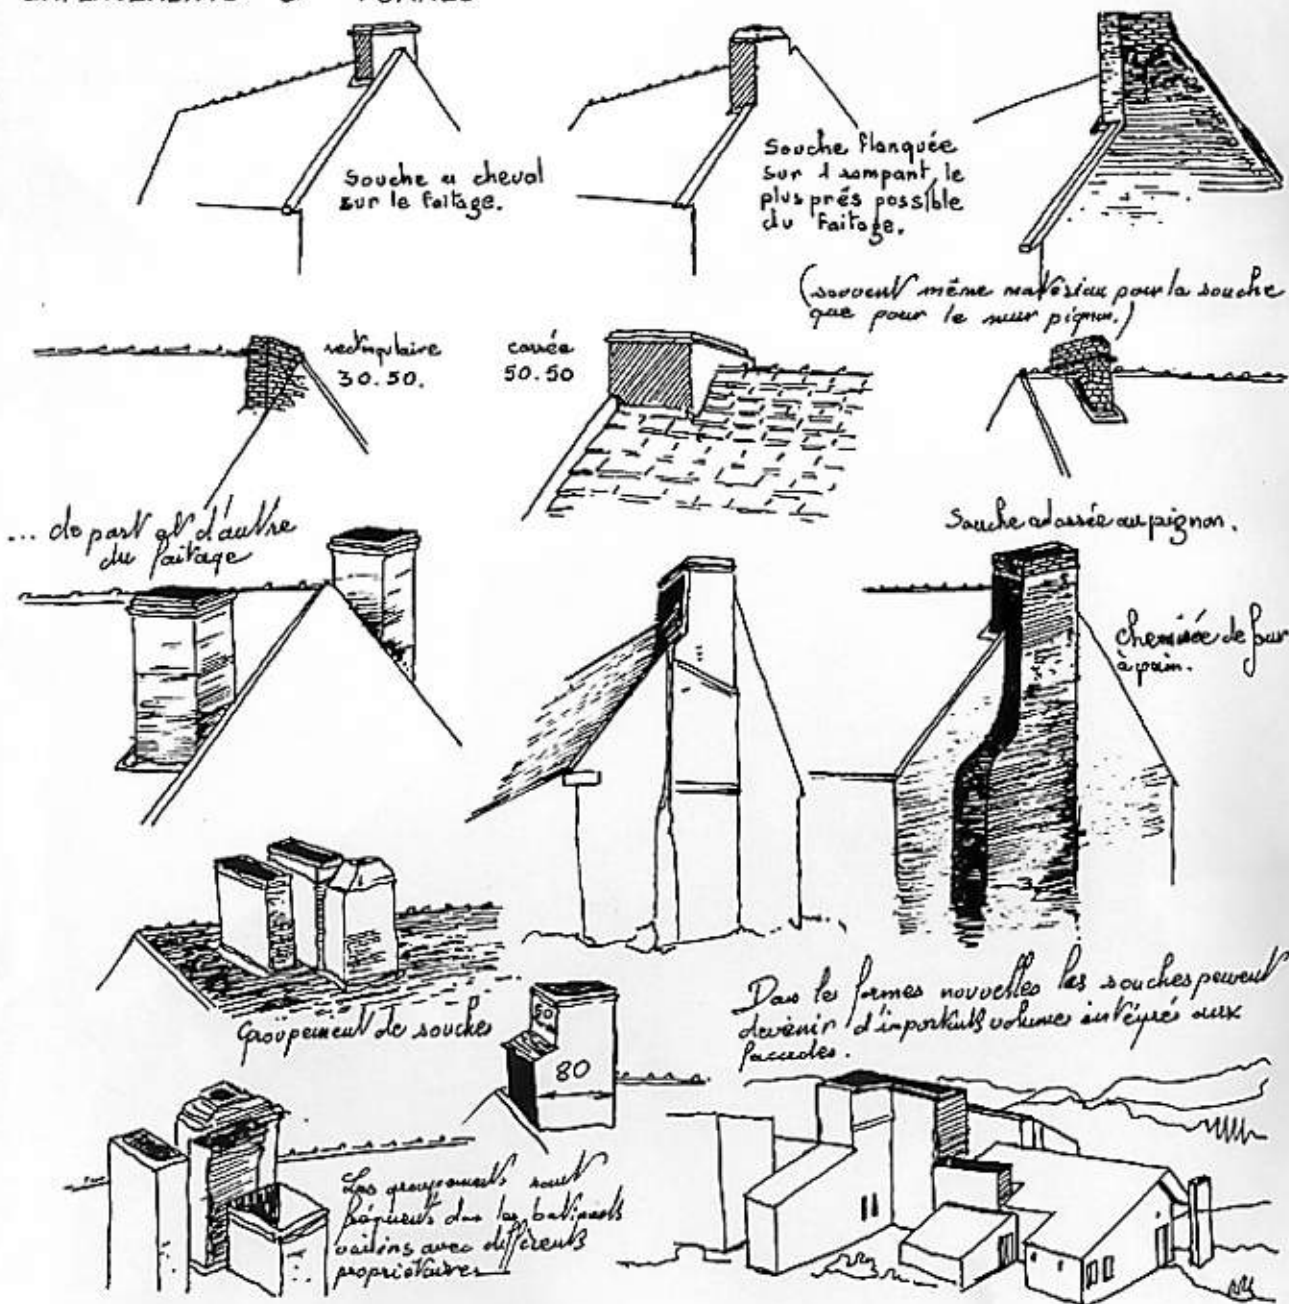 EMPLACEMENTS & FORMES
Souche a cheval
sur le faitage.
Souche flanquée
sur 1 rampant, le
plus prés possible
du faitage.
(souvent même matériau pour la souche
que pour le mur pignon.)
rectangulaire
30.50.
carrée
50.50
... de part et d'autre
du faitage
Souche adossée au pignon.
cheminée de four
à pain.
Groupement de souches
50
80
Dans les formes nouvelles les souches peuvent
devenir d'importants volumes intégrés aux
facades.
Les groupements sont
fréquents dans les batiments
voisins avec différents
proprietaires